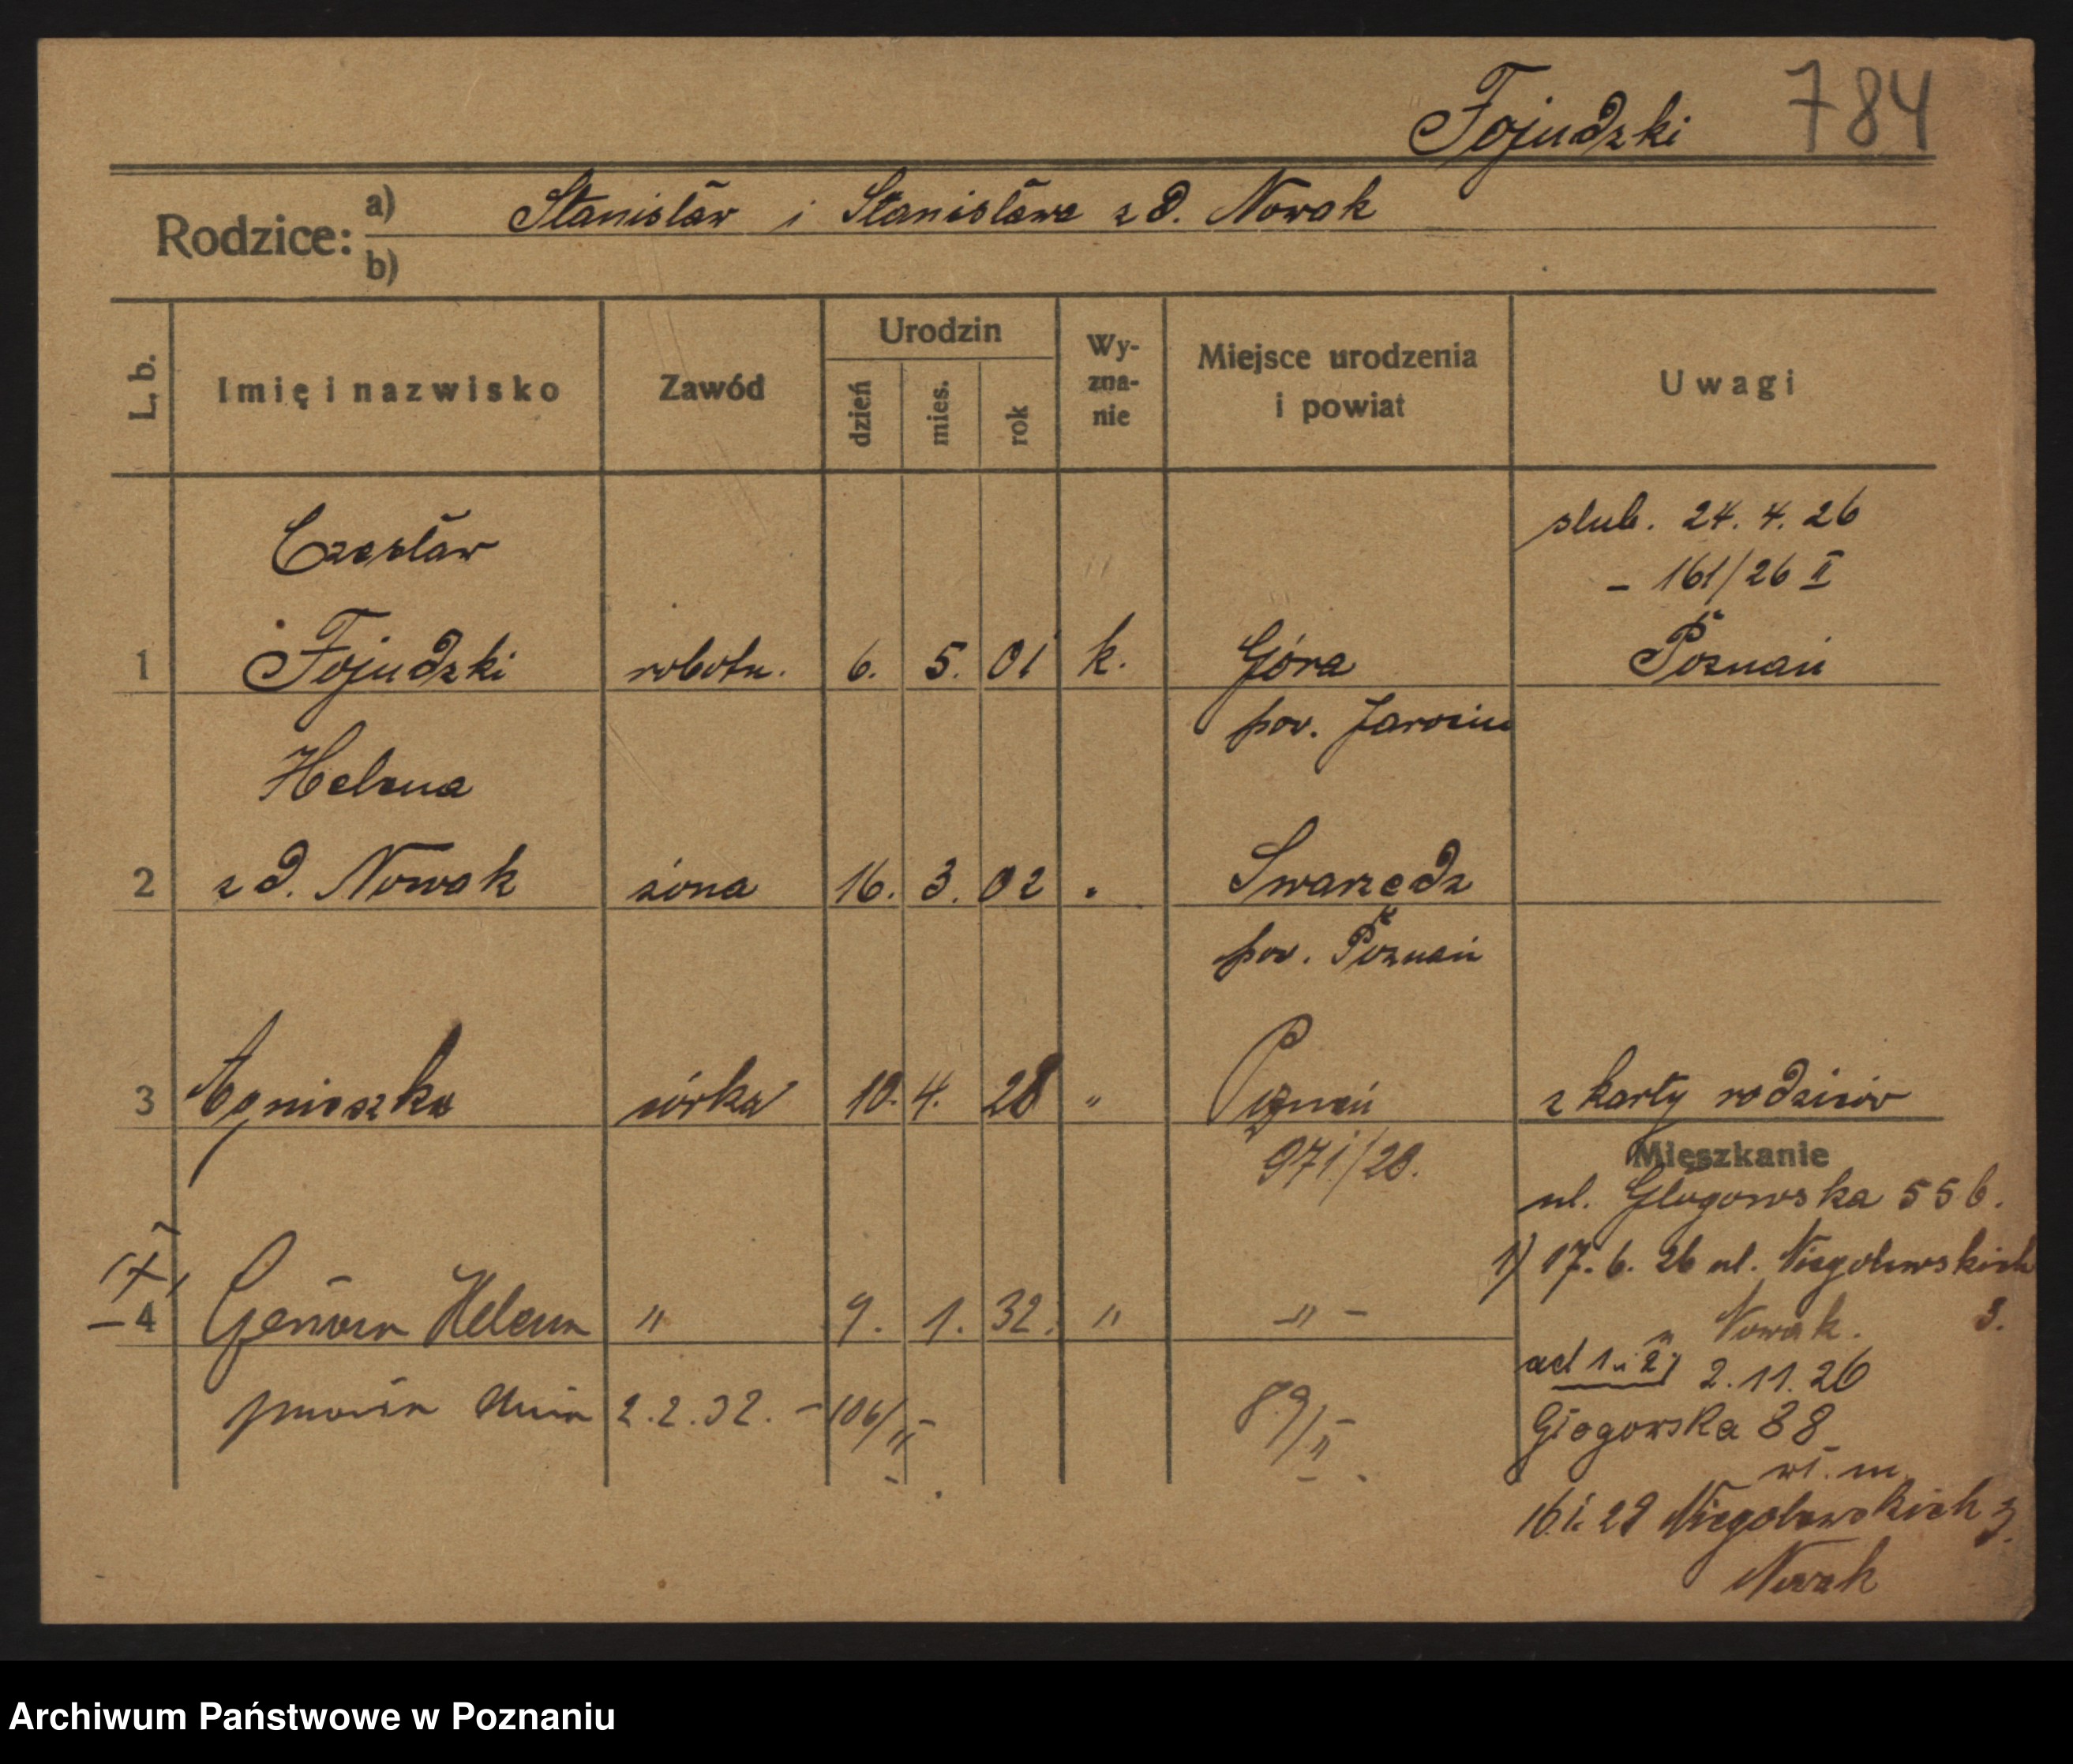 Fojudzki 784
Rodzice: a) Stanisław i Stanisława z d. Nowak
b)
L. b. Imię i nazwisko Zawód Urodzin dzień mies. rok Wy-zna-nie Miejsce urodzenia i powiat Uwagi
Czesław ślub. 24. 4. 26
– 161/26 II
1 Fojudzki robotn. 6. 5. 01 k. Góra Poznań
pow. Jarocin
Helena
2 z d. Nowak żona 16. 3. 02 " Swarzędz
pow. Poznań
3 Agnieszka córka 10. 4. 28 " Poznań z karty rodziców
971/28.
Mieszkanie
ul. Głogowska 55 b.
1) 17. 6. 26 ul. Niegolewskich
3.
Nowak.
4 Helena " 9. 1. 32. " " –
ad 1 i 2) 2. 11. 26
2. 2. 32. – 106/II 89/II
Głogowska 88
wł. m.
16. 1. 29 Niegolewskich 3.
Nowak
Archiwum Państwowe w Poznaniu